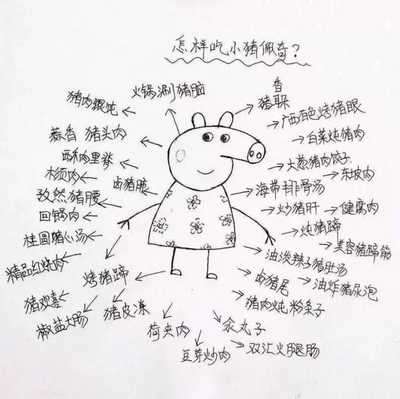 怎样吃小猪佩奇？
火锅涮猪脑
猪肉馄饨
蒜香 猪头肉
木须肉
卤猪腰
孜然猪腰
回锅肉
桂圆猪心汤
精品红烧肉
烤猪蹄
猪皮冻
椒盐大肠
荷夹肉
豆芽炒肉
汆丸子
双汇火腿肠
猪肉炖粉条子
卤猪尾
油炸猪尿泡
油泼辣子猪肚汤
美容猪蹄筋
炖猪蹄
炒猪肝
健腐肉
海带排骨汤
东坡肉
大葱猪肉饺子
白菜炖猪肉
广西脆烤猪眼
香